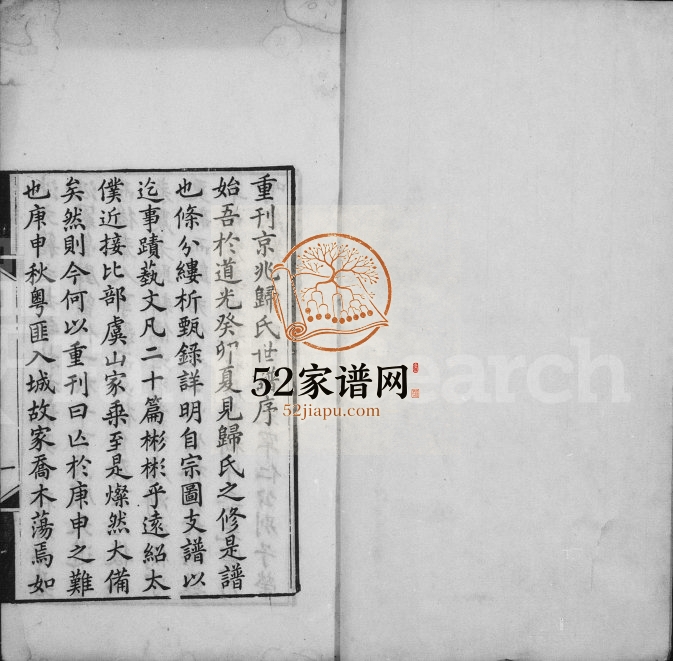 重刊京兆歸氏世譜序
始吾於道光癸卯夏見歸氏之修是譜
也條分縷析甄錄詳明自宗圖支譜以
迄事蹟藝文凡二十篇彬彬乎遠紹太
僕近接比部虞山家乘至是燦然大備
矣然則今何以重刊曰亾於庚申之難
也庚申秋粵匪入城故家喬木蕩焉如
一
52家谱网
52jiapu.com
earch